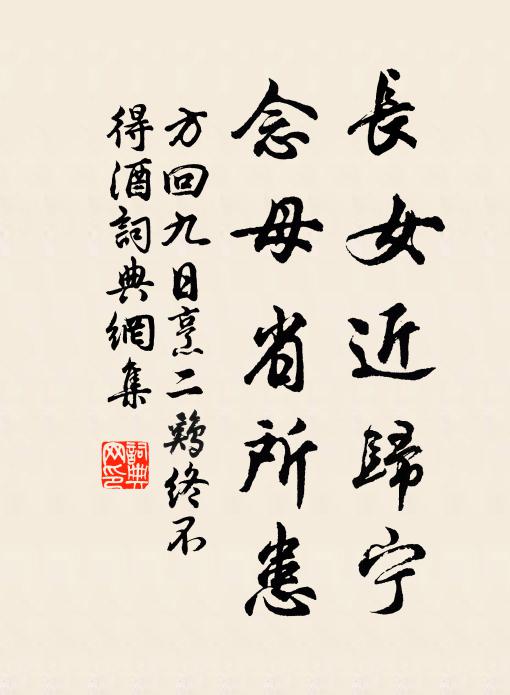 長女近歸宁
念母省所患
方回九日烹二鷄终不
得酒詞典網集
詞典
网印